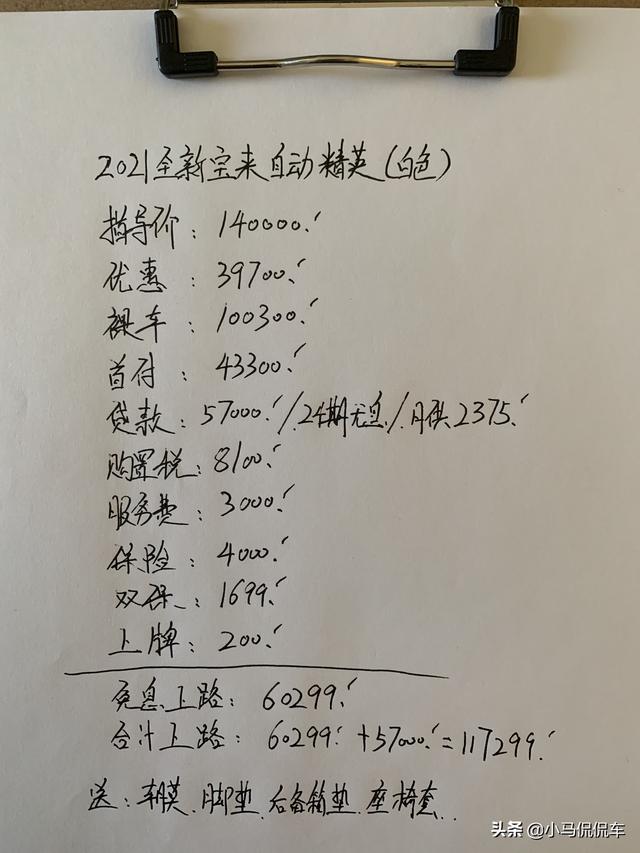 2021全新宝来自动精英(白色)
指导价:140000.
优惠:39700.
裸车:100300.
首付:43300.
贷款:57000./24期无息/月供2375.
购置税:8100.
服务费:3000.
保险:4000.
双保:1699.
上牌:200.
免息上路:60299.
合计上路:60299.+57000.=117299.
送:车膜.脚垫.后备箱垫.座椅套..
头条@小马侃侃车